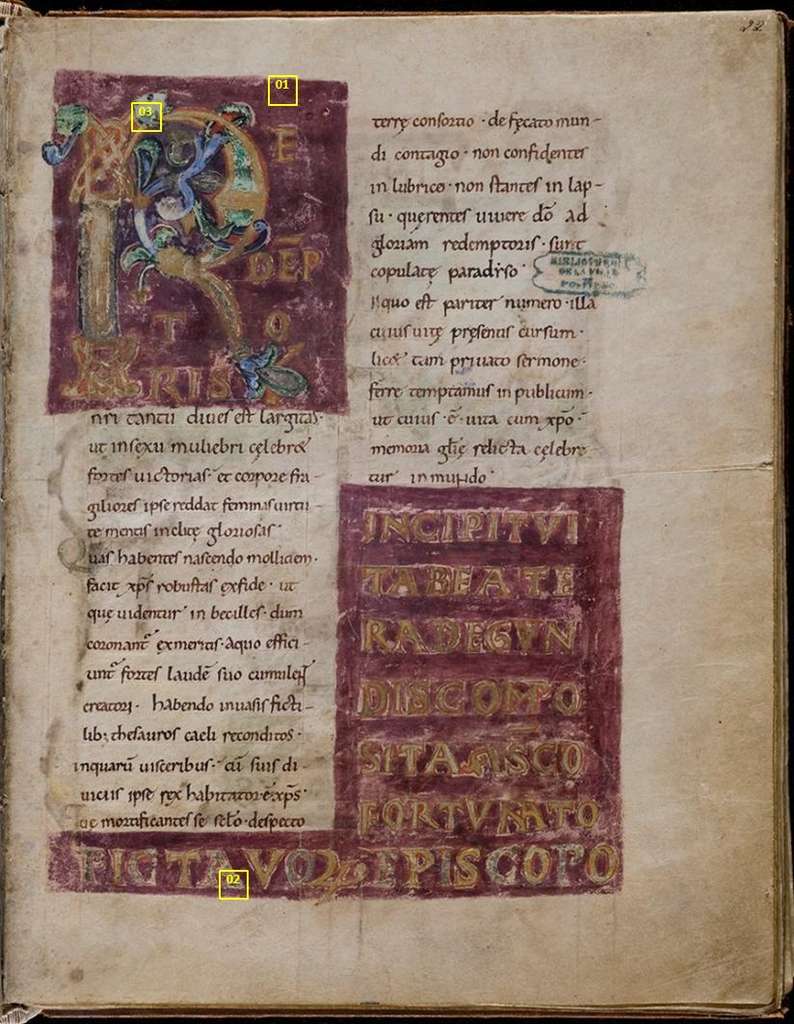 22
R E
DEP̄
T O
RIS
nr̄i tantū diues est largitas·
ut insexu muliebri cęlebret
fortes uictorias· et corpore fra-
giliores ipse reddat feminas uirtu-
te mentis inclitę gloriosas·
Quas habentes nascendo molliciem·
facit xp̄s robustas exfide· ut
quę uidentur inbecilles· dum
coronant̄ exmeritis· Aquo effici-
unt̄ fortes laudē suo cumulent
creatori· habendo inuasis ficti-
lib; thesauros caeli reconditos·
inquarū uisceribus· cū suis di-
uiciis ipse rex habitator ē xp̄s·
Quę mortificantes se sc̄lo· despecto
terrę consortio· defęcato mun-
di contagio· non confidentes
in lubrico· non stantes in lap-
su· quęrentes uiuere dō ad
gloriam redemptoris· sunt
copulatę paradyso·
Iiquo est pariter numero· illa
cuius uitę pręsentis cursum·
licet tam priuato sermone·
ferre temptamus in publicum·
ut cuius· ē· uita cum xpō·
memoria glię relicta cęlebre-
tur in mundo·
BIBLIOTHEQUE
DE LA VILLE
POITIERS
INCIPIT VI
TA BEATE
RADEGUN
DIS COMPO
SITA A SC̄O
FORTVNATO
PICTAVORUM EPISCOPO
01
02
03